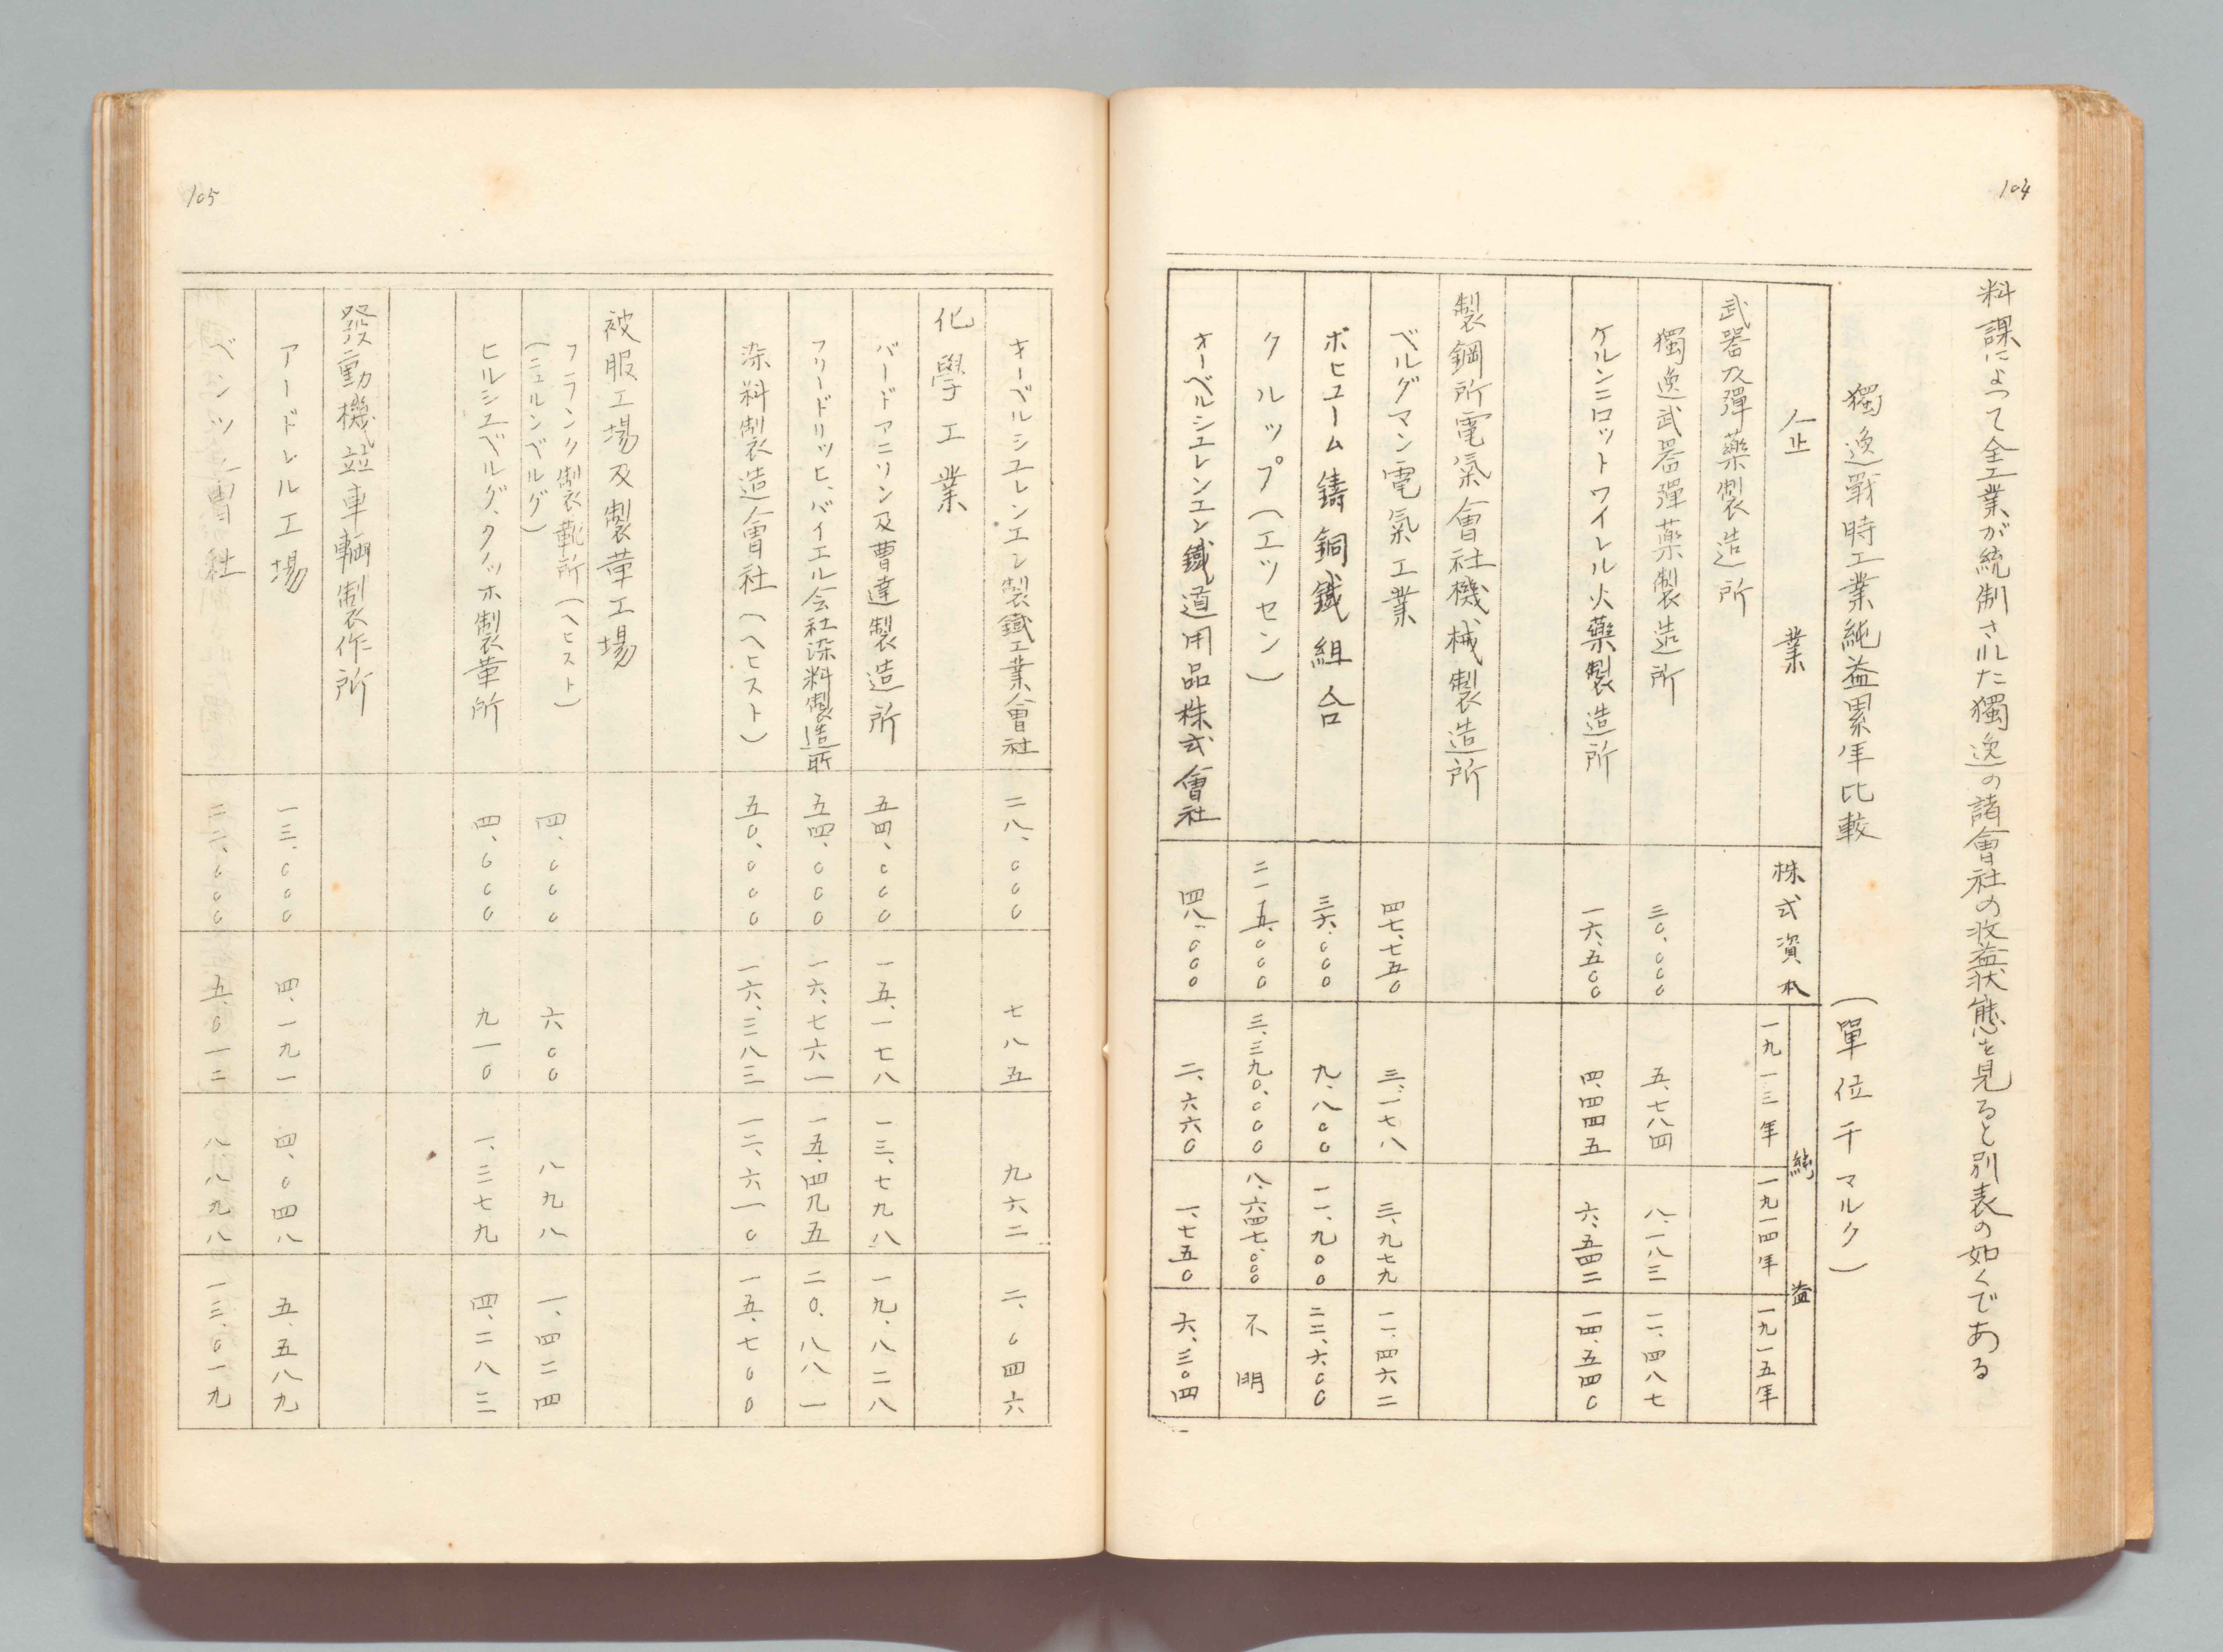 104
料課によつて全工業が統制された獨逸の諸會社の收益狀態を見ると別表の如くである
獨逸戰時工業純益累年比較 (單位千マルク)
企業 株式資本 純益
一九一三年 一九一四年 一九一五年
武器及彈藥製造所
獨逸武器彈藥製造所 三〇、〇〇〇 五、七八四 八、一八三 一一、四八七
ケルンニロットワイレル火藥製造所 一六、五〇〇 四、四四五 六、五四二 一四、五四〇
製鋼所電氣會社機械製造所
ベルグマン電氣工業 四七、七五〇 三、一七八 三、九七九 一一、四六二
ボヒユーム鑄鋼鐵組合 三六、〇〇〇 九、八〇〇 一一、九〇〇 二二、六〇〇
クルップ(エツセン) 二一五、〇〇〇 三、三九〇、〇〇〇 八、六四七、〇〇〇 不明
オーベルシユレンエン鐵道用品株式會社 四八、〇〇〇 二、六六〇 一、七五〇 六、三〇四
105
オーベルシユレンエン製鐵工業會社 二八、〇〇〇 七八五 九六二 二、〇四六
化學工業
バードアニリン及曹達製造所 五四、〇〇〇 一五、一七八 一三、七九八 一九、八二八
フリードリッヒ、バイエル会社染料製造所 五四、〇〇〇 一六、七六一 一五、四九五 二〇、八八一
染料製造會社(ヘヒスト) 五〇、〇〇〇 一六、三八三 一二、六一〇 一五、七〇〇
被服工場及製革工場
フランク製靴所(ヘヒスト)
(ニュルンベルグ) 四、〇〇〇 六〇〇 八九八 一、四二四
ヒルシユベルグ、クノッホ製革所 四、〇〇〇 九一〇 一、三七九 四、二八三
發動機並車輌製作所
アードレル工場 一三、〇〇〇 四、一九一 四、〇四八 五、五八九
ベンツ會社 二二、〇〇〇 五、〇一二 八、八九八 一三、〇一九